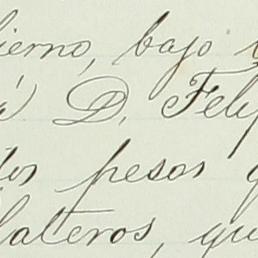 ierno, bajo
á D. Felip
tos pesos q
lateros, qu